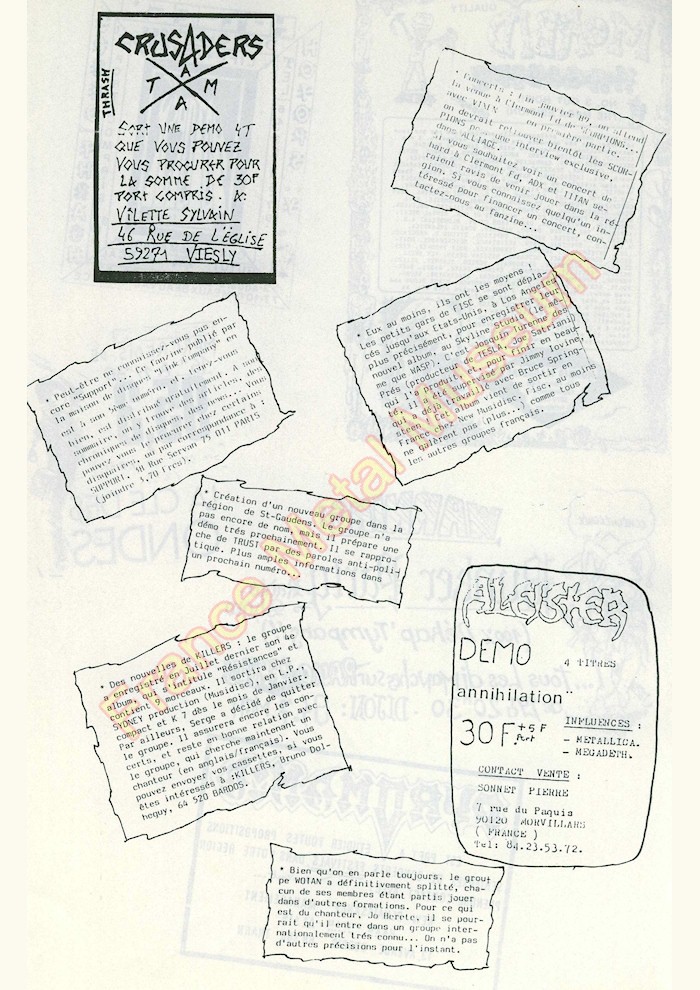 CRUSADERS
THRASH
A
T M
A
SORT UNE DEMO 4T
QUE VOUS POUVEZ
VOUS PROCURER POUR
LA SOMME DE 30F
PORT COMPRIS. A:
VILETTE SYLVAIN
46 RUE DE L'ÉGLISE
59271 VIESLY
• Concerts : Fin janvier 89, on attend
la venue à Clermont Fd de SCORPIONS...
avec en première partie.
on devrait retrouver bientôt les SCOR-
PIONS pour une interview exclusive.
dans ALLIAGE.
Si vous souhaitez voir un concert de
hard à Clermont Fd, ADX et TITAN se-
raient ravis de venir jouer dans la ré-
gion. Si vous connaissez quelqu'un in-
téressé pour financer un concert, con-
tactez-nous au fanzine...
• Eux au moins, ils ont les moyens !
Les petits gars de FISC se sont dépla-
cés jusqu'aux Etats-Unis, à Los Angeles
plus précisément, pour enregistrer leur
nouvel album, au Skyline Studio (le mê-
me que WASP). C'est Joaquin Turenne des
Prés (producteur de TESLA, Joe Satriani)
qui l'a produit, et pour finir en beau-
té il a été mixé par Jimmy Iovine,
qui a déjà travaillé avec Bruce Spring-
steen. Cet album vient de sortir en
France chez New Musidisc, Fisc, au moins
ne galèrent pas (plus... comme tous
les autres groupes français.
• Peut-être ne connaissez-vous pas en-
core "Support"... Ce fanzine publié par
la maison de disques "Link Company" en
est à son numéro, et, tenez-vous
bien, est distribué gratuitement. A son
sommaire, on y trouve des articles, des
chroniques de disques, des news... Vous
pouvez vous le procurer chez certains
disquaires, ou par correspondance à :
SUPPORT, Rue Servan 75 011 PARIS
(joindre 3,70 Frcs).
• Création d'un nouveau groupe dans la
région de St-Gaudens. Le groupe n'a
pas encore de nom, mais il prépare une
démo trés prochainement. Il se rappro-
che de TRUST par des paroles anti-poli-
tique. Plus amples informations dans
un prochain numéro...
• Des nouvelles de KILLERS : le groupe
a enregistré en Juillet dernier son 4e
album, qui s'intitule "Résistances" et
contient morceaux. Il sortira chez
SYDNEY production (Musidisc), en L.P.,
compact et K 7 dès le mois de Janvier.
Par ailleurs, Serge a décidé de quitter
le groupe. Il assurera encore les con-
certs, et reste en bonne relation avec
le groupe, qui cherche maintenant un
chanteur (en anglais/français). Vous
pouvez envoyer vos cassettes, si vous
êtes intéressés à :KILLERS, Bruno Dol-
hequy, 64 520 BARDOS.
ALEISTER
DEMO 4 TITRES
annihilation"
30F +5F Port
INFLUENCES :
- METALLICA.
- MEGADETH.
CONTACT VENTE :
SONNET PIERRE
7 rue du Paquis
90120 MORVILLARS
( FRANCE )
Tel: 84.23.53.72.
• Bien qu'on en parle toujours, le grou-
pe WOTAN a définitivement splitté, cha-
cun de ses membres étant partis jouer
dans d'autres formations. Pour ce qui
est du chanteur, Jo Herete, il se pour-
rait qu'il entre dans un groupe inter-
nationalement trés connu... On n'a pas
d'autres précisions pour l'instant.
France Metal Museum